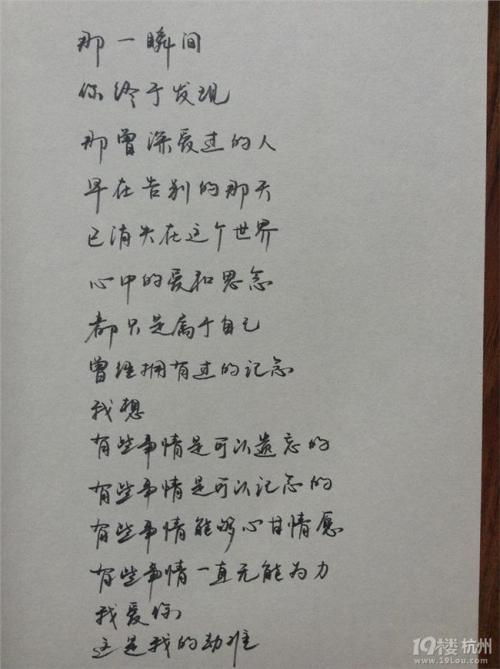 那一瞬间
你终于发现
那曾深爱过的人
早在告别的那天
已消失在这个世界
心中的爱和思念
都只是属于自己
曾经拥有过的记念
我想
有些事情是可以遗忘的
有些事情是可以记念的
有些事情能够心甘情愿
有些事情一直无能为力
我爱你
这是我的劫难
19楼 杭州
www.19lou.com